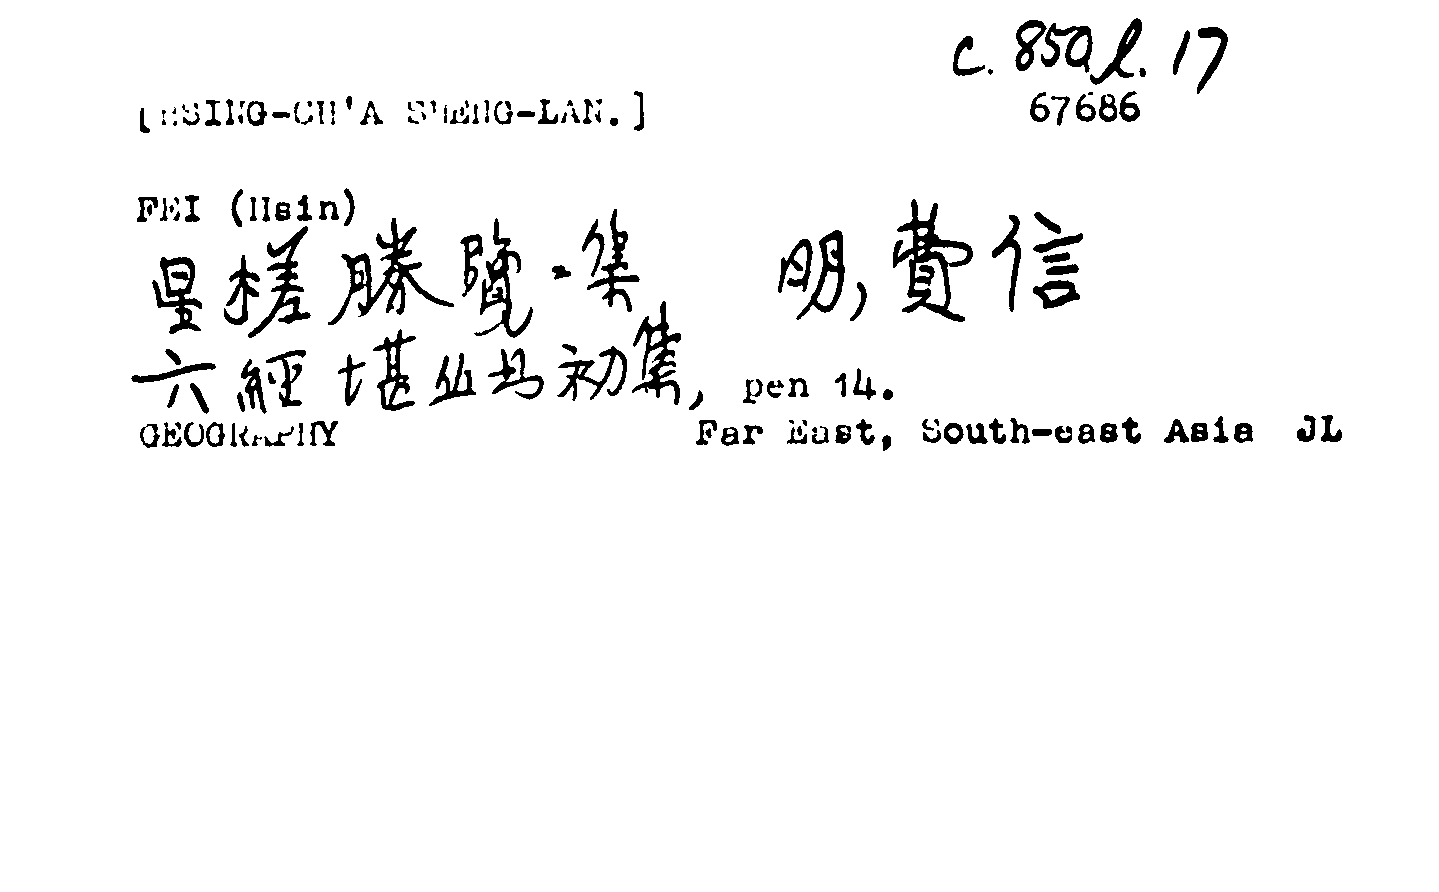 c. 850 l. 17
[HSING-CH'A SHENG-LAN.]
67686
FEI (Hsin)
星槎勝覽二集 明,費信
六經堪丛书初集, pen 14.
GEOGRAPHY Far East, South-east Asia JL